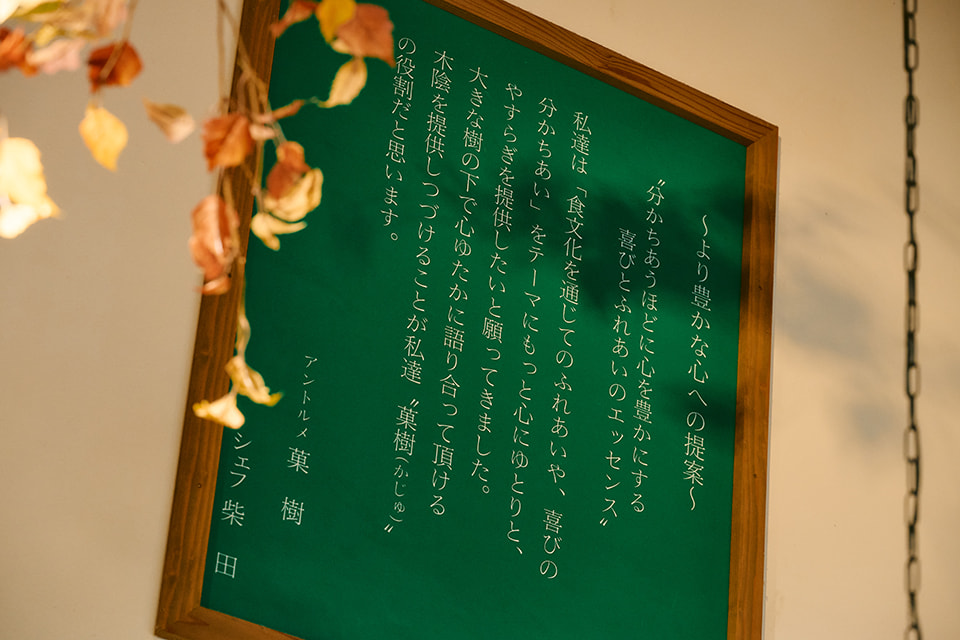 ～より豊かな心への提案～
〝分かちあうほどに心を豊かにする
喜びとふれあいのエッセンス〟
私達は「食文化を通じてのふれあいや、喜びの
分かちあい」をテーマにもっと心にゆとりと、
やすらぎを提供したいと願ってきました。
大きな樹の下で心ゆたかに語り合って頂ける
木陰を提供しつづけることが私達〝菓樹(かじゅ)〟
の役割だと思います。
アントルメ 菓樹
シェフ 柴田